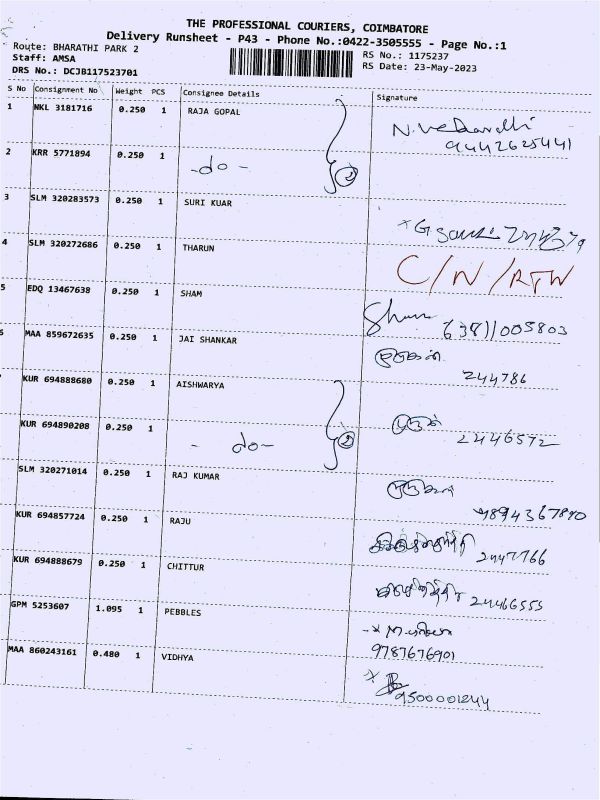 THE PROFESSIONAL COURIERS, COIMBATORE
Delivery Runsheet - P43 - Phone No.:0422-3505555 - Page No.:1
Route: BHARATHI PARK 2
Staff: AMSA
DRS No.: DCJB117523701
RS No.: 1175237
RS Date: 23-May-2023
S No Consignment No Weight PCS Consignee Details Signature
1 NKL 3181716 0.250 1 RAJA GOPAL
9442625441
2 KRR 5771894 0.250 1 -do- 2
3 SLM 320283573 0.250 1 SURI KUAR
4 SLM 320272686 0.250 1 THARUN C/N/RTW
5 EDQ 13467638 0.250 1 SHAM Sham 63811005803
MAA 859672635 0.250 1 JAI SHANKAR
244786
KUR 694888680 0.250 1 AISHWARYA
KUR 694890208 0.250 1 - do- 2 2446572
SLM 320271014 0.250 1 RAJ KUMAR
9894367890
KUR 694857724 0.250 1 RAJU 2447766
KUR 694888679 0.250 1 CHITTUR 24466555
GPM 5253607 1.095 1 PEBBLES
9787676901
MAA 860243161 0.480 1 VIDHYA
9500001244